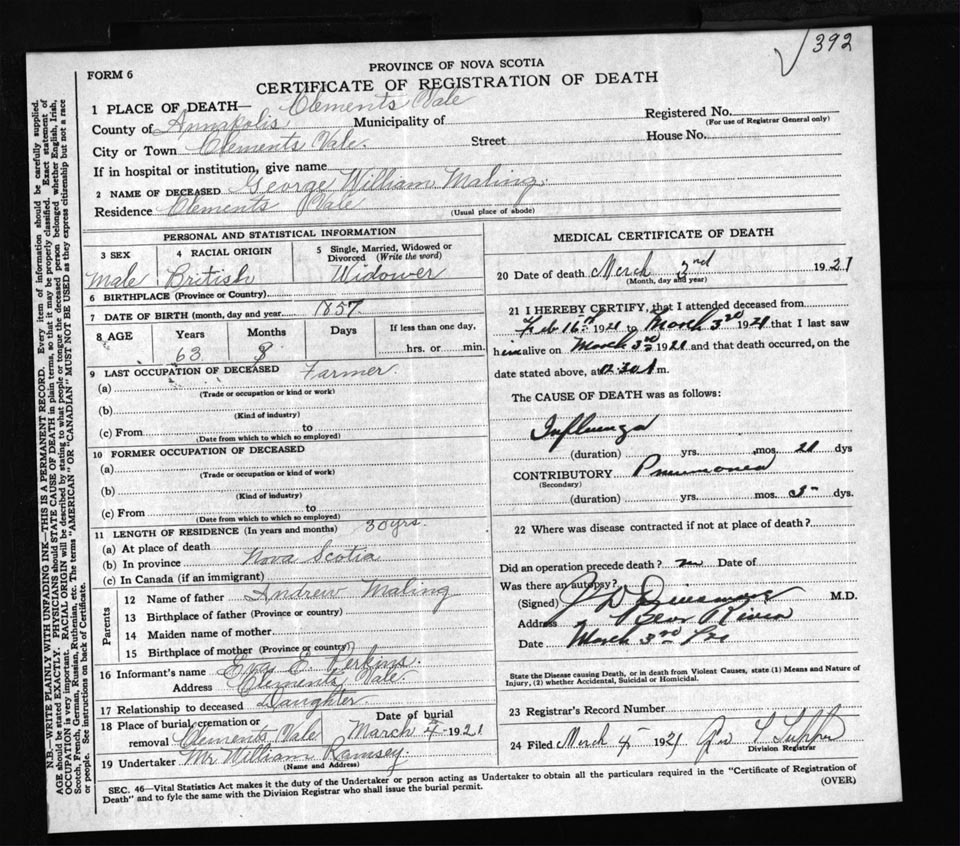 392
PROVINCE OF NOVA SCOTIA
FORM 6
CERTIFICATE OF REGISTRATION OF DEATH
1 PLACE OF DEATH— Clements Vale
County of Annapolis. Municipality of
Registered No.
(For use of Registrar General only)
City or Town Clements Vale. Street House No.
If in hospital or institution, give name
2 NAME OF DECEASED George William Maling.
Residence Clements Vale (Usual place of abode)
PERSONAL AND STATISTICAL INFORMATION
3 SEX 4 RACIAL ORIGIN 5 Single, Married, Widowed or Divorced (Write the word)
Male British Widower
6 BIRTHPLACE (Province or Country)
7 DATE OF BIRTH (month, day and year) 1857
8 AGE Years Months Days If less than one day,
63 8 hrs. or min.
9 LAST OCCUPATION OF DECEASED Farmer.
(a)
(Trade or occupation or kind or work)
(b)
(Kind of industry)
(c) From to
(Date from which to which so employed)
10 FORMER OCCUPATION OF DECEASED
(a)
(Trade or occupation or kind of work)
(b)
(Kind of industry)
(c) From to
(Date from which to which so employed)
11 LENGTH OF RESIDENCE (In years and months) 30 yrs.
(a) At place of death
(b) In province Nova Scotia
(c) In Canada (if an immigrant)
Parents
12 Name of father Andrew Maling
13 Birthplace of father (Province or country)
14 Maiden name of mother
15 Birthplace of mother (Province or country)
16 Informant's name E. Perkins.
Address Clements Vale.
17 Relationship to deceased Daughter.
18 Place of burial, cremation or Date of burial
removal Clements Vale March 4 1921
19 Undertaker Mr William Ramsey.
(Name and Address)
MEDICAL CERTIFICATE OF DEATH
20 Date of death March 3rd 1921
(Month, day and year)
21 I HEREBY CERTIFY, that I attended deceased from
Feb 16th 1921 to March 3rd 1921 that I last saw
him alive on March 3rd 1921 and that death occurred, on the
date stated above, at 12.30 A m.
The CAUSE OF DEATH was as follows:
Influenza
(duration) yrs. mos. 21 dys
CONTRIBUTORY Pneumonia
(Secondary)
(duration) yrs. mos. dys.
22 Where was disease contracted if not at place of death?
Did an operation precede death? no Date of
Was there an autopsy?
(Signed) M.D.
Address Bear River
Date March 3rd
State the Disease causing Death, or in death from Violent Causes, state (1) Means and Nature of
Injury, (2) whether Accidental, Suicidal or Homicidal.
23 Registrar's Record Number
24 Filed March 4 1921
Division Registrar
SEC. 46—Vital Statistics Act makes it the duty of the Undertaker or person acting as Undertaker to obtain all the particulars required in the "Certificate of Registration of
Death" and to fyle the same with the Division Registrar who shall issue the burial permit.
(OVER)
N.B.—WRITE PLAINLY WITH UNFADING INK—THIS IS A PERMANENT RECORD. Every item of information should be carefully supplied.
AGE should be stated EXACTLY. PHYSICIANS should STATE CAUSE OF DEATH in plain terms, so that it may be properly classified. Exact statement of
OCCUPATION is very important. RACIAL ORIGIN will be described by stating to what people or tongue the deceased person belonged whether English, Irish,
Scotch, French, German, Russian, Ruthenian, etc. The terms "AMERICAN" OR "CANADIAN" MUST NOT BE USED as they express citizenship but not a race
or people. See instructions on back of Certificate.